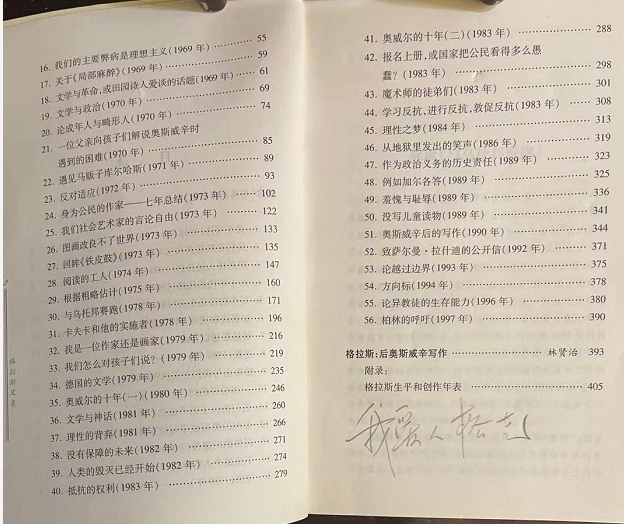 16. 我们的主要弊病是理想主义(1969 年) ………… 55
17. 关于《局部麻醉》(1969 年) ………… 59
18. 文学与革命,或田园诗人爱谈的话题(1969 年) ………… 61
19. 文学与政治(1970 年) ………… 69
20. 论成年人与畸形人(1970 年) ………… 74
21. 一位父亲向孩子们解说奥斯威辛时
遇到的困难(1970 年) ………… 85
22. 遇见马贩子库尔哈斯(1971 年) ………… 89
23. 反对适应(1972 年) ………… 93
24. 身为公民的作家——七年总结(1973 年) ………… 102
25. 我们社会艺术家的言论自由(1973 年) ………… 122
26. 图画改良不了世界(1973 年) ………… 133
27. 回眸《铁皮鼓》(1973 年) ………… 135
28. 阅读的工人(1974 年) ………… 147
29. 根据粗略估计(1975 年) ………… 160
30. 与乌托邦赛跑(1978 年) ………… 171
31. 卡夫卡和他的实施者(1978 年) ………… 196
32. 我是一位作家还是画家(1979 年) ………… 216
33. 我们怎么对孩子们说?(1979 年) ………… 219
34. 德国的文学(1979 年) ………… 235
35. 奥威尔的十年(一)(1980 年) ………… 246
36. 文学与神话(1981 年) ………… 260
37. 理性的背弃(1981 年) ………… 266
38. 没有保障的未来(1982 年) ………… 271
39. 人类的毁灭已经开始(1982 年) ………… 274
40. 抵抗的权利(1983 年) ………… 279
格拉斯文集
41. 奥威尔的十年(二)(1983 年) ………… 288
42. 报名上册,或国家把公民看得多么愚
蠢?(1983 年) ………… 298
43. 魔术师的徒弟们(1983 年) ………… 301
44. 学习反抗,进行反抗,敦促反抗(1983 年) ………… 308
45. 理性之梦(1984 年) ………… 313
46. 从地狱里发出的笑声(1986 年) ………… 319
47. 作为政治义务的历史责任(1989 年) ………… 323
48. 例如加尔各答(1989 年) ………… 325
49. 羞愧与耻辱(1989 年) ………… 336
50. 没写儿童读物(1989 年) ………… 341
51. 奥斯威辛后的写作(1990 年) ………… 344
52. 致萨尔曼·拉什迪的公开信(1992 年) ………… 371
53. 论越过边界(1993 年) ………… 375
54. 方向标(1994 年) ………… 378
55. 论异教徒的生存能力(1996 年) ………… 380
56. 柏林的呼吁(1997 年) ………… 390
格拉斯:后奥斯威辛写作 ………… 林贤治 393
附录:
格拉斯生平和创作年表 ………… 405
我 人